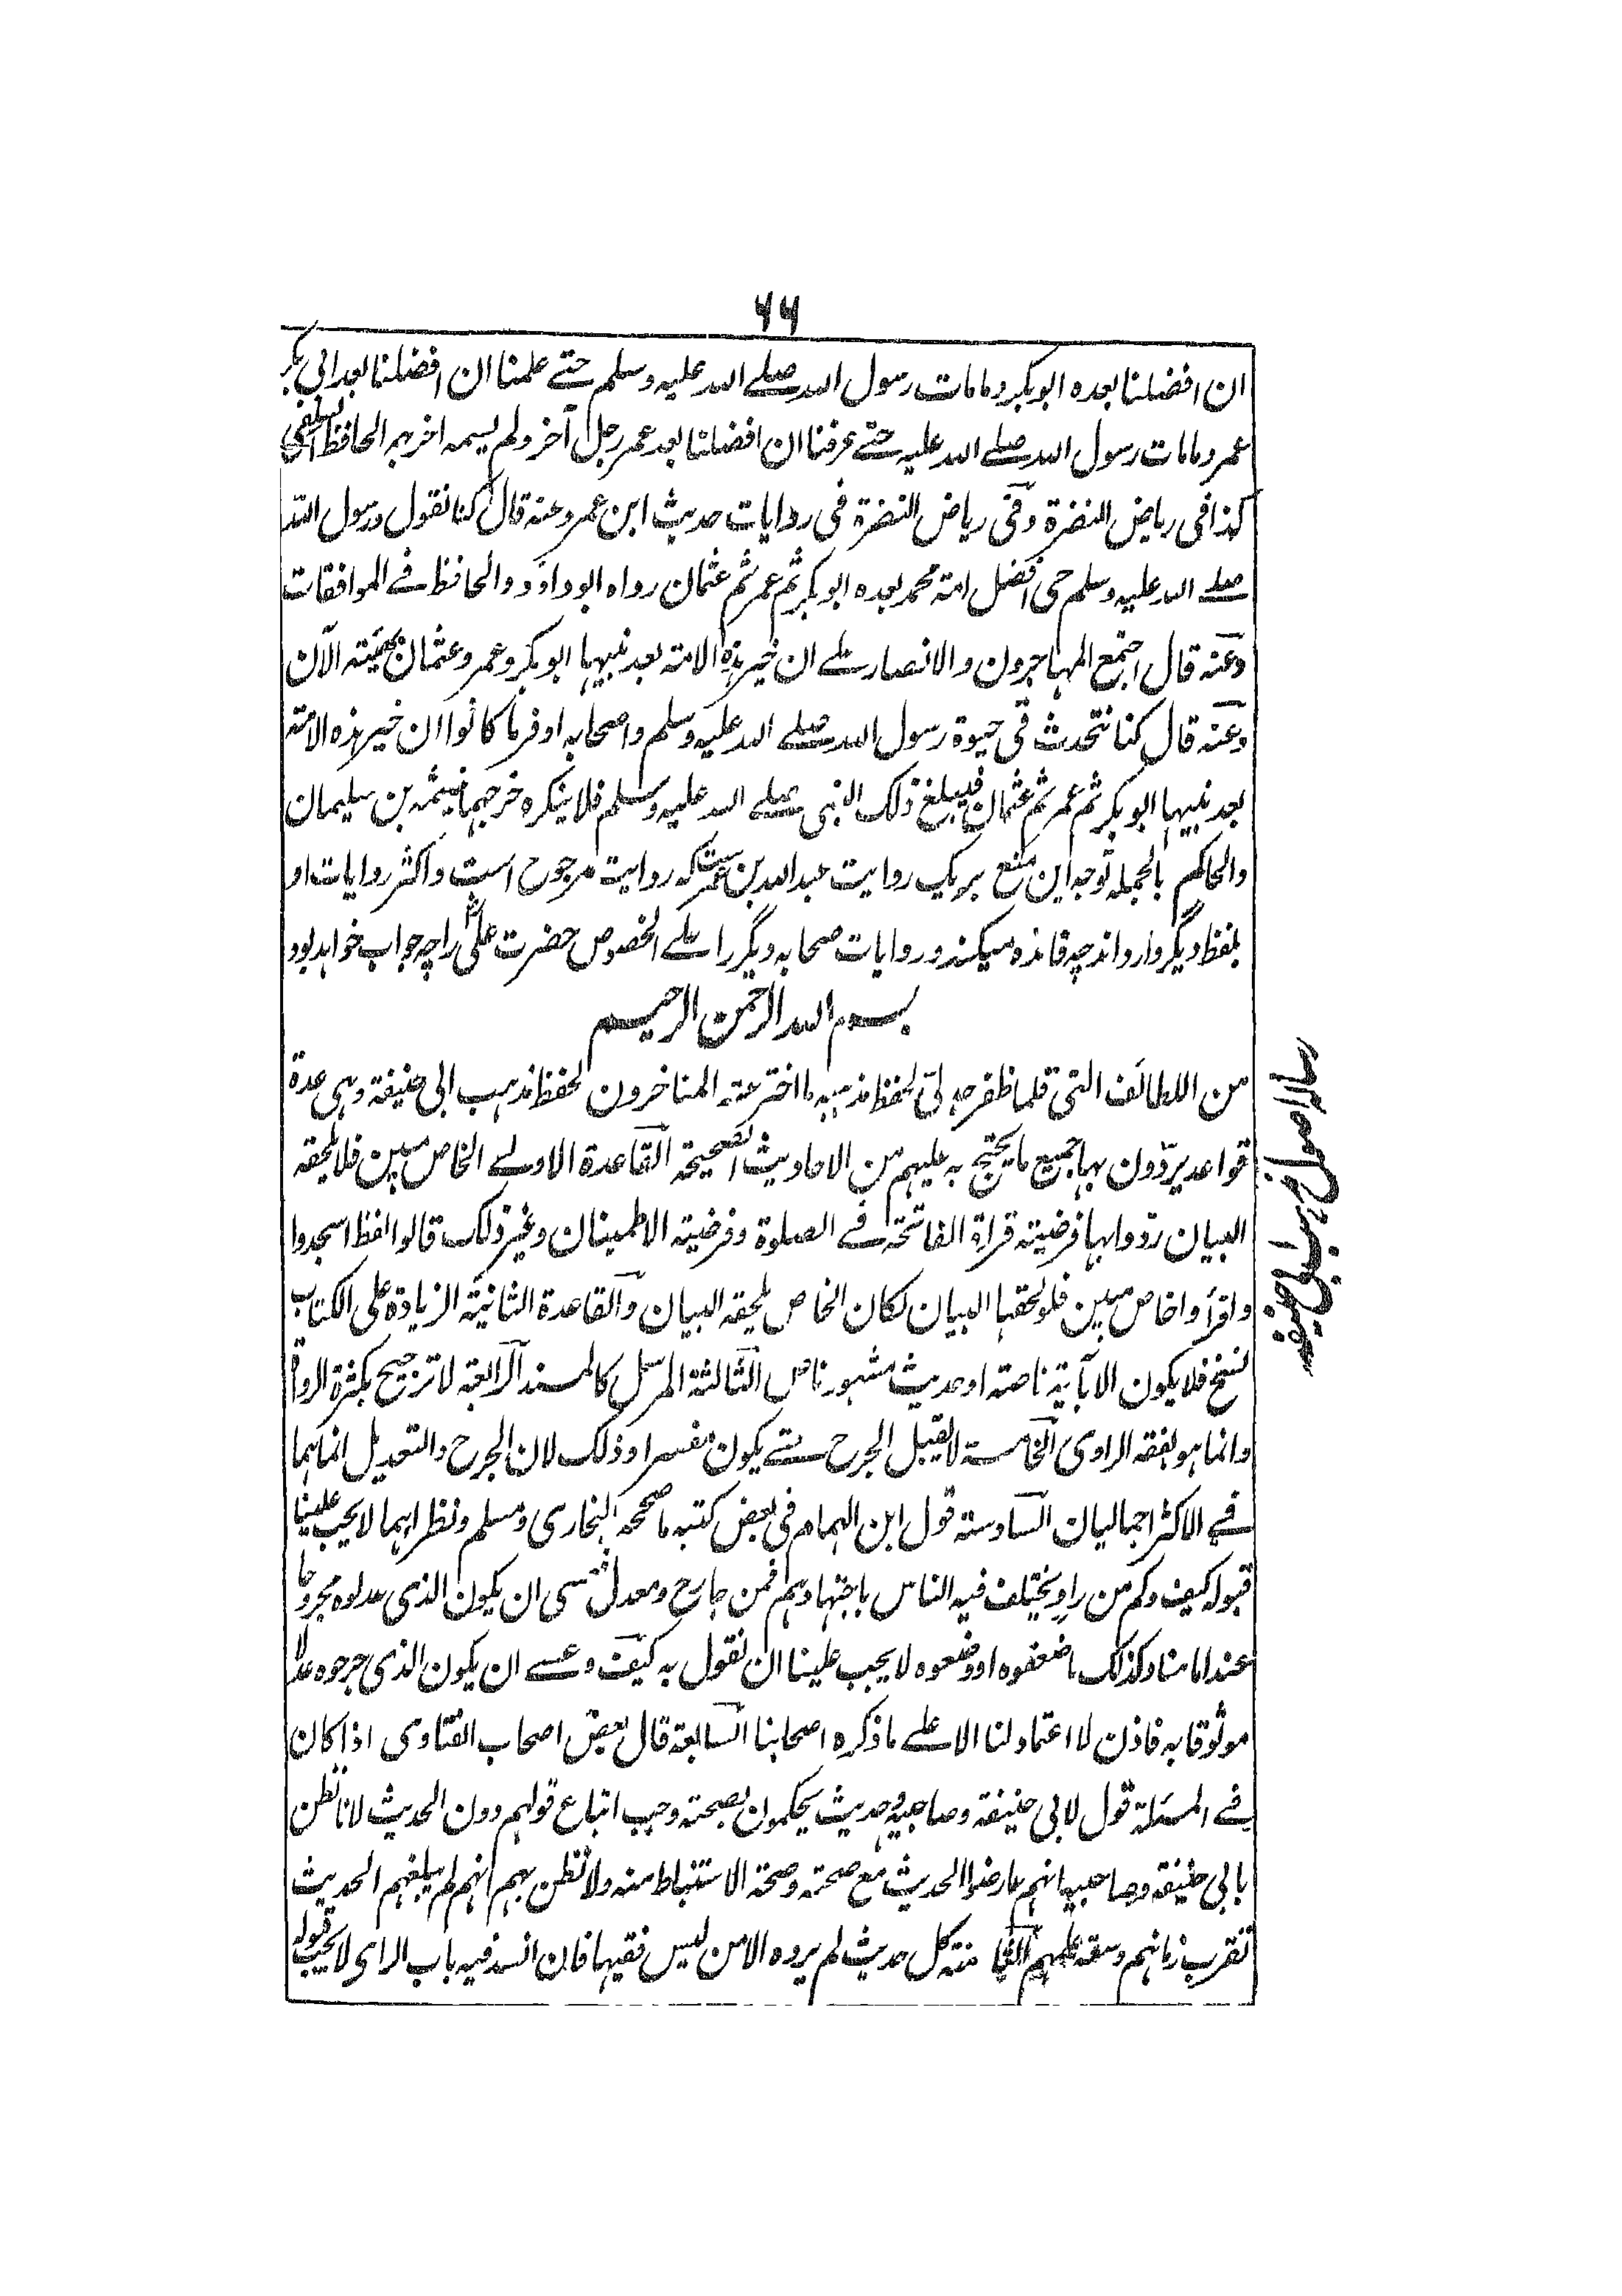 ۶۶
ان افضلنا بعده ابوبکر وما مات رسول الله صلے الله علیه وسلم حتے علمنا ان افضلنا بعد ابی بکر
عمر وما مات رسول الله صلے الله علیه حتے عرفنا ان افضلنا بعد عمر رجل آخر ولم یسمه اخرجه الحافظ السلفی
کذا فی ریاض النضرة وفی ریاض النضرة فی روایات حدیث ابن عمر وعنه قال کنا نقول ورسول الله
صلے الله علیه وسلم حی افضل امة محمد بعده ابوبکر ثم عمر ثم عثمان رواه ابوداؤد والحافظ فے الموافقات
وعنه قال اجتمع المهاجرون والانصار علے ان خیر هذه الامة بعد نبیها ابوبکر وعمر وعثمان الآن
وعنه قال کنا نتحدث فی حیوة رسول الله صلے الله علیه وسلم واصحابه اوفر ما کانوا ان خیر هذه الامة
بعد نبیها ابوبکر ثم عمر ثم عثمان فیبلغ ذلک النبی صلے الله علیه وسلم فلا ینکره خرجهما خیثمة بن سلیمان
والحاکم بالجمله توجه این منع بریک روایت عبدالله بن عمرست که روایت مرجوح است واکثر روایات او
بلفظ دیگر وارد اند چه فائده میکند و روایات صحابه دیگر را علے الخصوص حضرت علیؓ را چه جواب خواهد بود
بسم الله الرحمن الرحیم
من اللطائف التی قلما ظفر جدلی لحفظ مذهبه ما اخترعته المتاخرون لحفظ مذهب ابی حنیفة وهی عدة
قواعد یردّون بها جمیع ما یحتج به علیهم من الاحادیث الصحیحة القاعدة الاولے الخاص مبین فلا یلحقه
البیان ردّوا بها فرضیة قراءة الفاتحة فے الصلوة وفرضیة الاطمینان وغیر ذلک قالوا لفظ اسجدوا
واقرأوا خاص مبین فلو لحقها البیان لکان الخاص یلحقه البیان والقاعدة الثانیة الزیادة علی الکتاب
نسخ فلا یکون الا بآیة ناصة او حدیث مشهور ناص الثالثة المرسل کالمسند الرابعة لا ترجیح بکثرة الرواة
وانما هو بفقه الراوی الخامسة لا یقبل الجرح حتے یکون مفسرا وذلک لان الجرح والتعدیل انما هما
فے الاکثر اجمالیان السادسة قول ابن الهمام فی بعض کتبه ما صححه البخاری ومسلم ونظراهما لا یجب علینا
قبوله کیف وکم من راوٍ یختلف فیه الناس باجتهادهم فمن جارح ومعدل عسی ان یکون الذی عدلوه مجروحا
عند امامنا وکذلک ما ضعفوه او وضعوه لا یجب علینا ان نقول به کیف وعسے ان یکون الذی جرحوه عدلا
موثوقا به فاذن لا اعتماد لنا الا علے ما ذکره اصحابنا السابعة قال بعض اصحاب الفتاوی اذا کان
فے المسئلة قول لابی حنیفة وصاحبیه وحدیث یحکمون بصحته وجب اتباع قولهم دون الحدیث لانا نظن
بابی حنیفة وصاحبیه انهم عارضوا الحدیث مع صحته وصحة الاستنباط منه ولا نظن بهم انهم لم یبلغهم الحدیث
لقرب زمانهم وسعة علمهم الثامنة کل حدیث لم یروه الا من لیس فقیها فان انسد فیه باب الرای لا یجب قبوله
رساله اصول مذهب ابی حنیفه